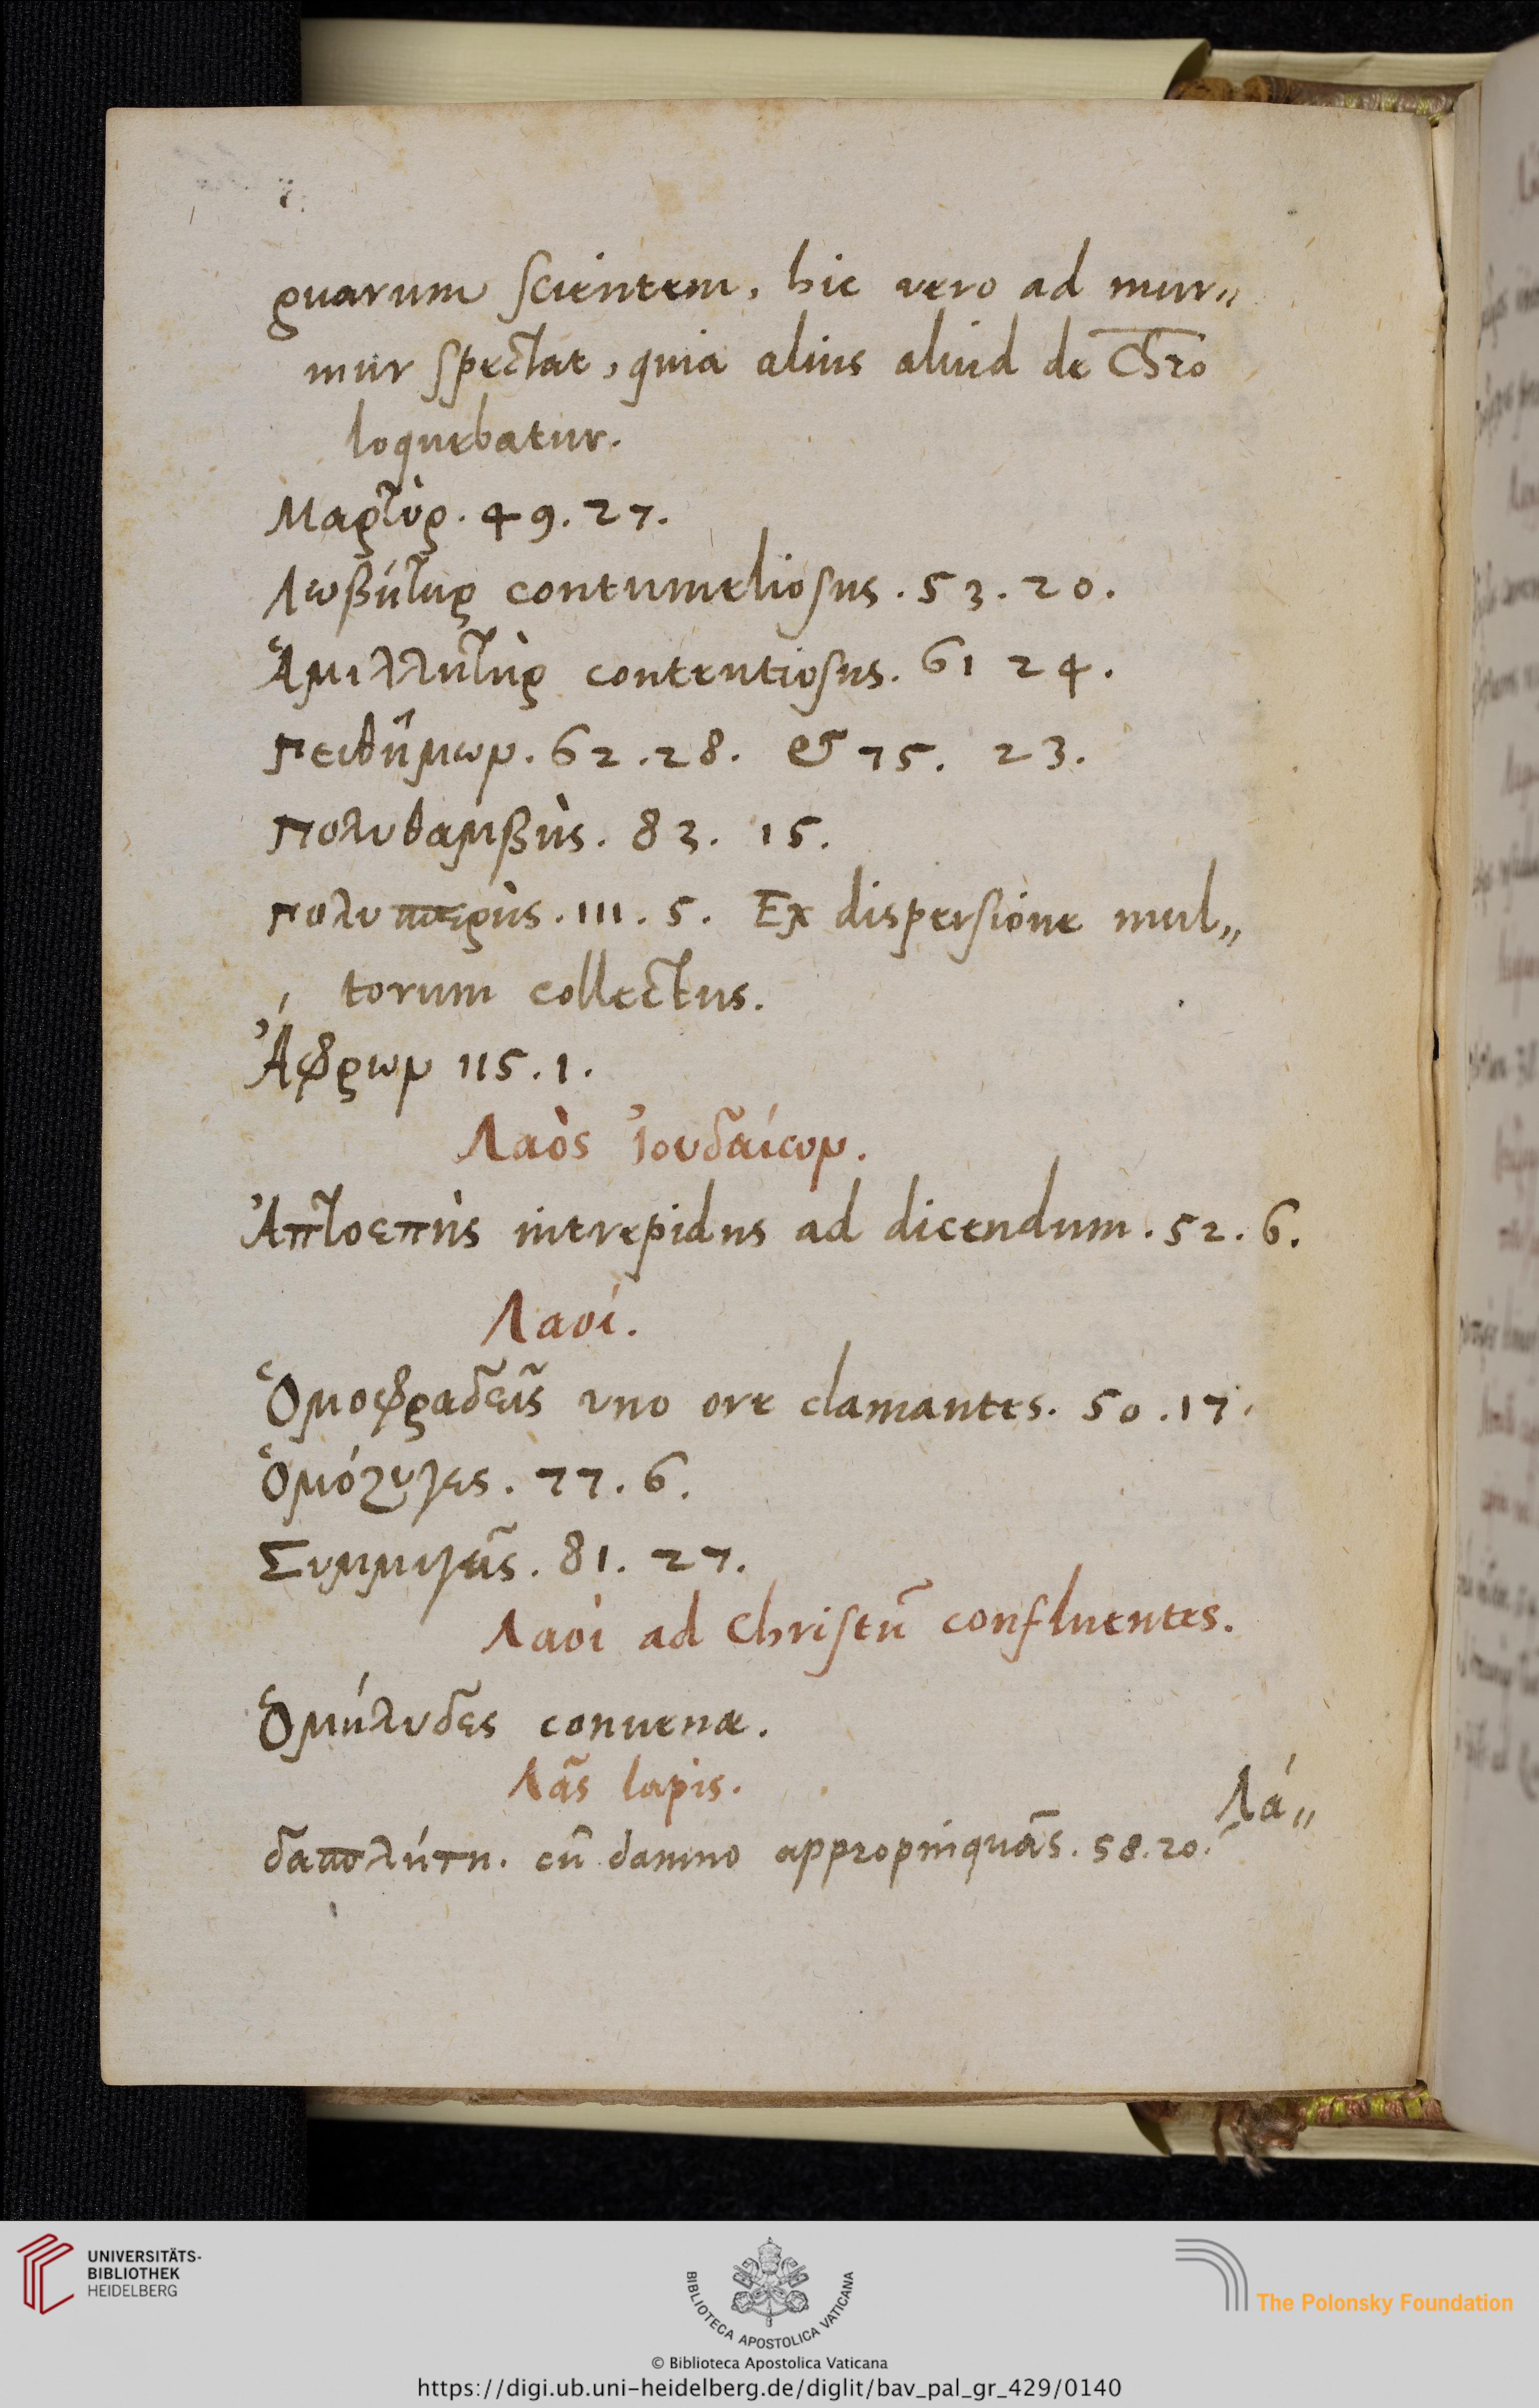 guarum scientem, hic vero ad mur„
mur spectat, quia alius aliud de Chr̅o
loquebatur.
Μαρτὺρ. 49. 27.
Λωβήτηρ contumeliosus. 53. 20.
Ἁμιλλητὴρ contentiosus. 61 24.
πειθήμων. 62. 28. & 75. 23.
πολυθαμβὴς. 83. 15.
πολυσπερὴς. 111. 5. Ex dispersione mul„
torum collectus.
Ἄφρων 115. 1.
Λαὸς Ἰουδαίων.
Ἀπτοεπὴς intrepidus ad dicendum. 52. 6.
Λαοί.
Ὁμοφραδεῖς vno ore clamantes. 50. 17.
Ὁμόζυγες. 77. 6.
Συμμιγεῖς. 81. 27.
Λαοὶ ad Christū confluentes.
Ὁμήλυδες conuenæ.
Λᾶς lapis.
Λά„
cū damno appropinquās. 58. 20.
UNIVERSITÄTS-
BIBLIOTHEK
HEIDELBERG
BIBLIOTECA APOSTOLICA VATICANA
The Polonsky Foundation
© Biblioteca Apostolica Vaticana
https://digi.ub.uni-heidelberg.de/diglit/bav_pal_gr_429/0140